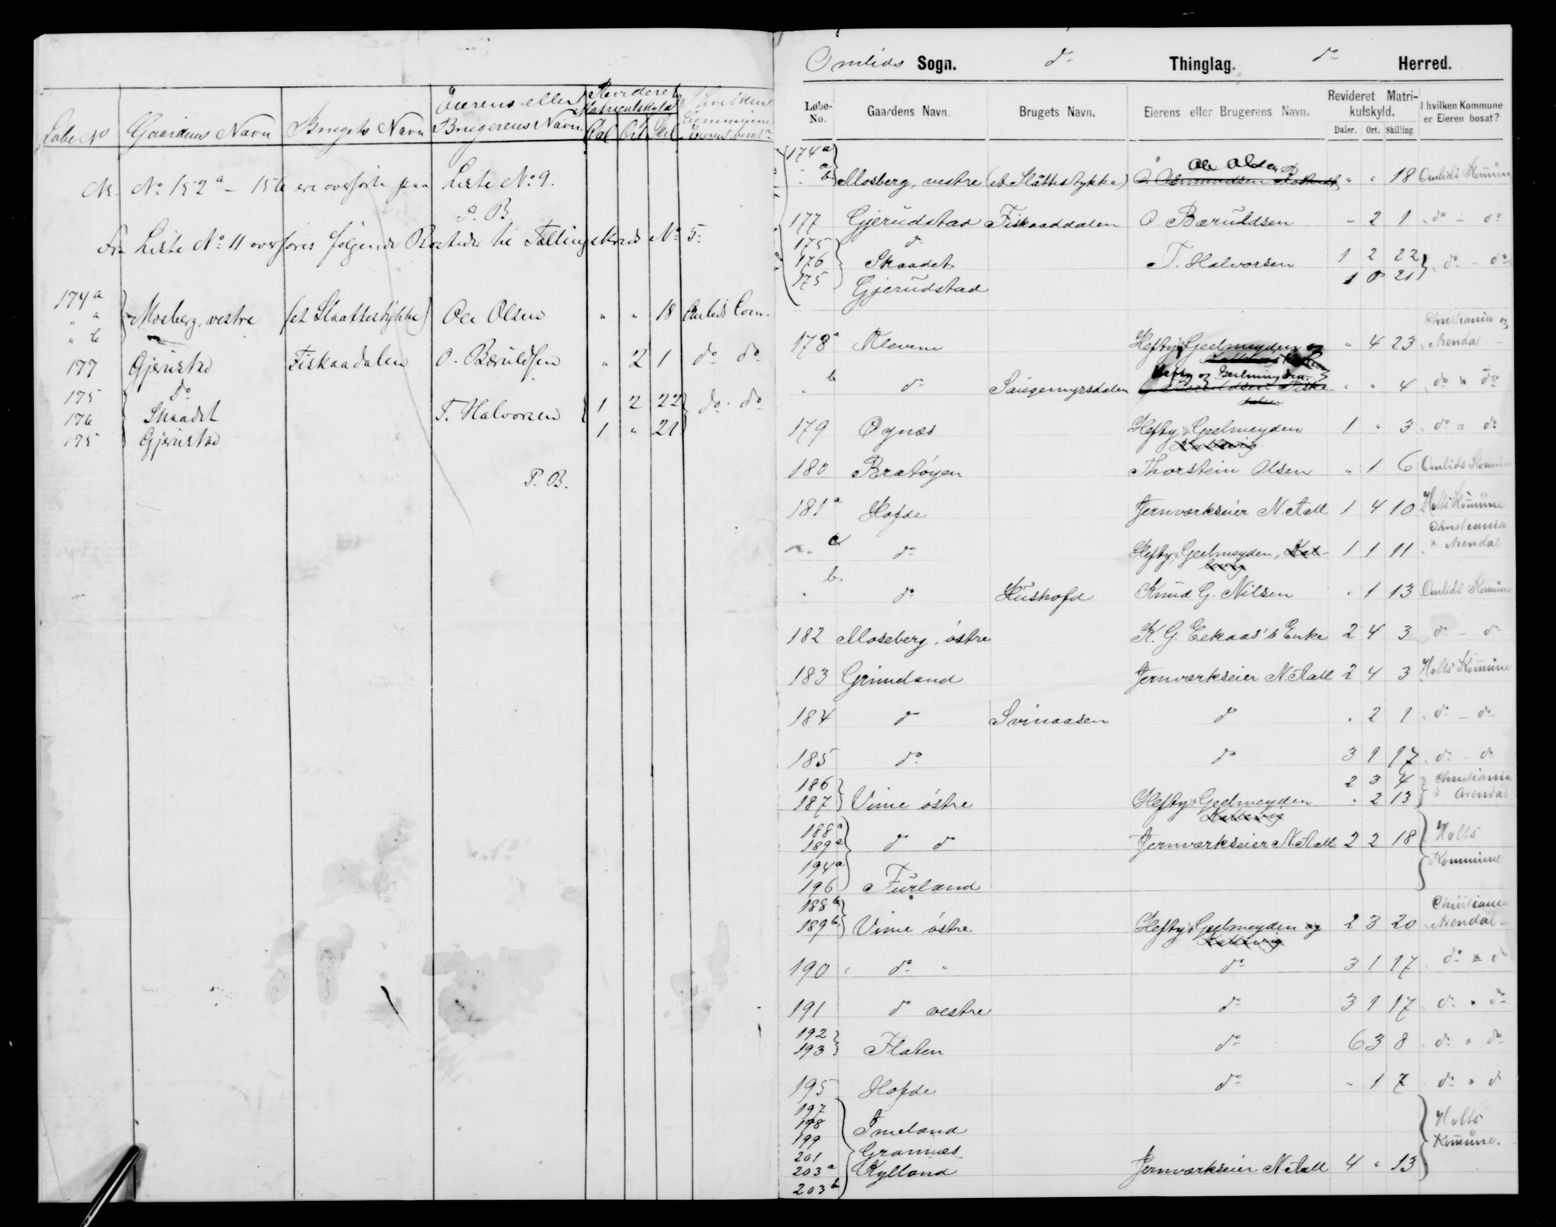 Løbe No Gaardens Navn Brugets Navn Eierens eller Brugerens Navn Revideret Matriculskyld Dal Ort Skil I hvilken Commune Eieren bosat?
No 152a – 156 ere overførte paa Liste No 9.
P. B.
Fra Liste No 11 overføres følgende til Tællingskreds No 5:
174a
" a
" b } Mosberg, vestre (et Slaattestykke) Ole Olsen " " 18 Omlids Com.
177 Gjerustad Fiskaadalen O. Bæruldsen " 2 1 do do
175 do
176 Skaadet T. Halvorsen 1 2 22 do do
175 Gjerustad 1 " 21
P. B.
Omlids Sogn. do Thinglag. do Herred.
Løbe-No. Gaardens Navn. Brugets Navn. Eierens eller Brugerens Navn. Revideret Matrikulskyld. Daler. Ort. Skilling I hvilken Kommune er Eieren bosat?
174a
" a
" b } Mosberg, vestre (et Slåttestykke) Ole Olsen " " 18 Omlids Komun
177 Gjerudstad Fiskaaddalen O. Bæruldsen - 2 1 do - do
175 do
176 Skaadet T. Halvorsen 1 2 22 do - do
175 Gjerudstad 1 0 21
178a Alevne Hefty Geelmeyden og " 4 23 Christiania og Arendal
" b do Saugemyrsdalen Hefty og Geelmeyden " " 4 do " do
179 Øynæs Hefty Geelmeyden 1 " 3 do " do
180 Bratøyen Thorstein Olsen " 1 6 Omlids Komun
181a Hofde Jernværkseier N Aall 1 4 10 Holts Komune
do Hefty, Geelmeyden, 1 1 11 Christiania & Arendal
" b do Hüshofd Knud G. Nilsen " 1 13 Omlids Komune
182 Moseberg, østre K. G. Eekaas's Enke 2 4 3 do - do
183 Grimeland Jernværkseier N Aall 2 4 3 Holts Komune
184 do Svinaasen do " 2 1 do - do
185 do do 3 1 17 do - do
186 2 3 4 Christiania
187 } Vime østre Hefty Geelmeyden " 2 13 & Arendal
188a
189a do do Jernværkseier N Aall 2 2 18 Holts
194a Kommune
196 Fürland
188b Christiania
189b } Vime østre Hefty Geelmeyden og 2 3 20 Arendal
190 " do " do 3 1 17 do & do
191 do vestre do 3 1 17 do " do
192
193 } Flaten do 6 3 8 do " do
195 Hofde do " 1 7 do " do
197 Holts
198 Imeland Komune.
199
201 Grannæs
203a Kylland Jernværkseier N Aall 4 " 13
203b